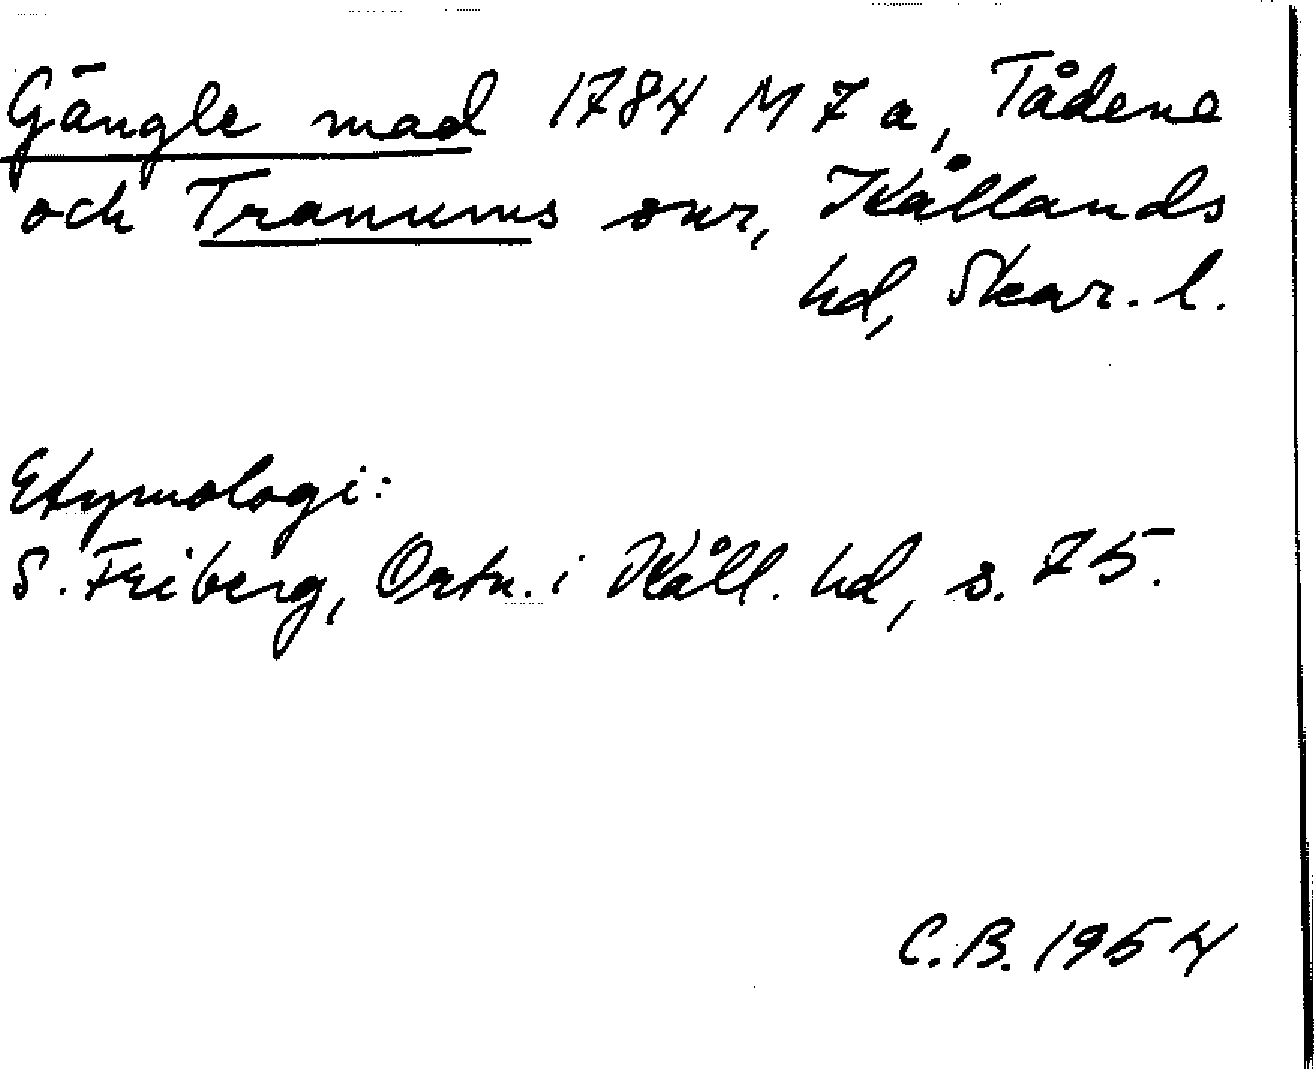 Gängle mad 1784 M 7 a, Tådene
och Tranums snr, Kållands
hd, Skar. l.
Etymologi:
S. Friberg, Ortn. i Kåll. hd, s. 75.
C.B. 1954